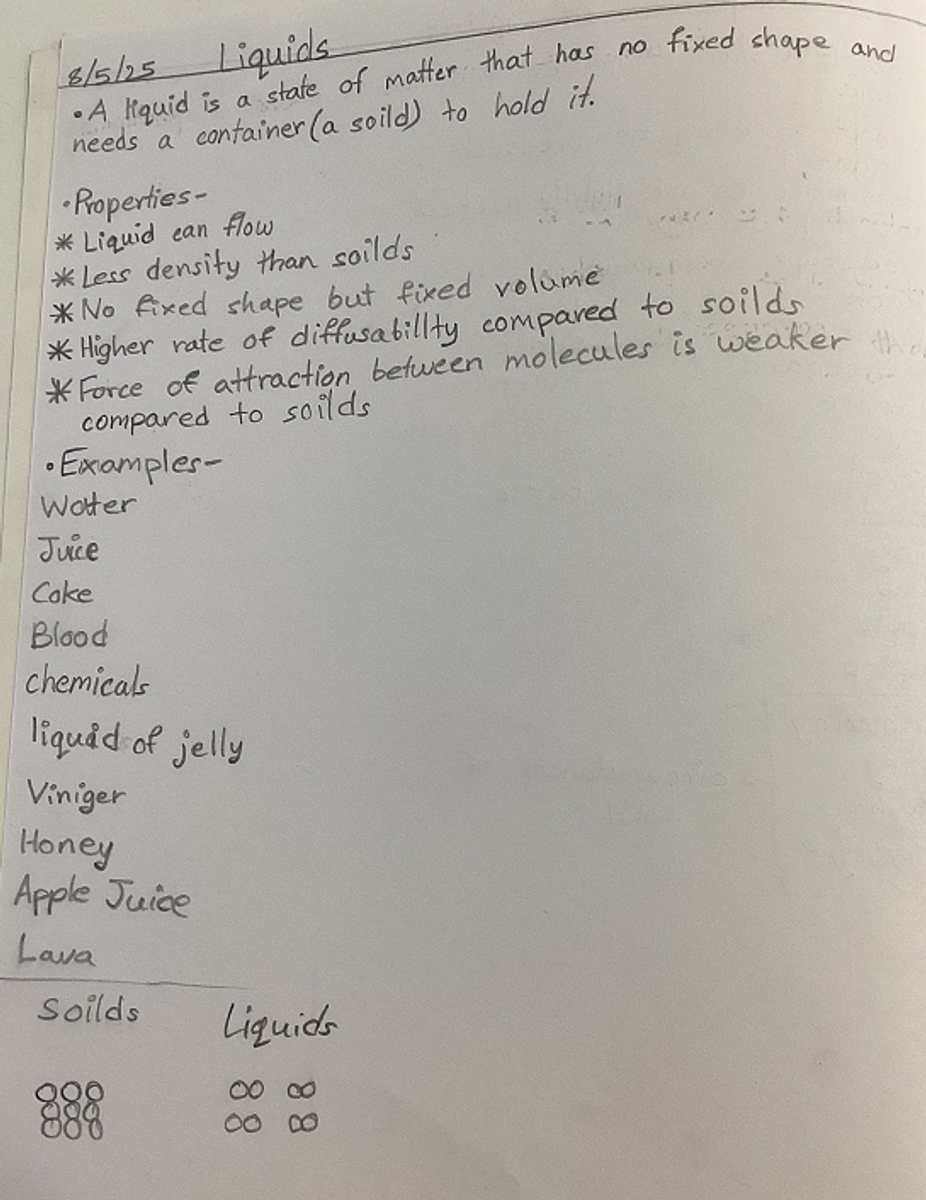 8/5/25 Liquids
• A liquid is a state of matter that has no fixed shape and
needs a container (a soild) to hold it.
• Properties-
* Liquid can flow
* Less density than soilds
* No fixed shape but fixed volume
* Higher rate of diffusabillty compared to soilds
* Force of attraction between molecules is weaker
compared to soilds
• Examples-
Water
Juice
Coke
Blood
chemicals
liquid of jelly
Viniger
Honey
Apple Juice
Lava
Soilds Liquids